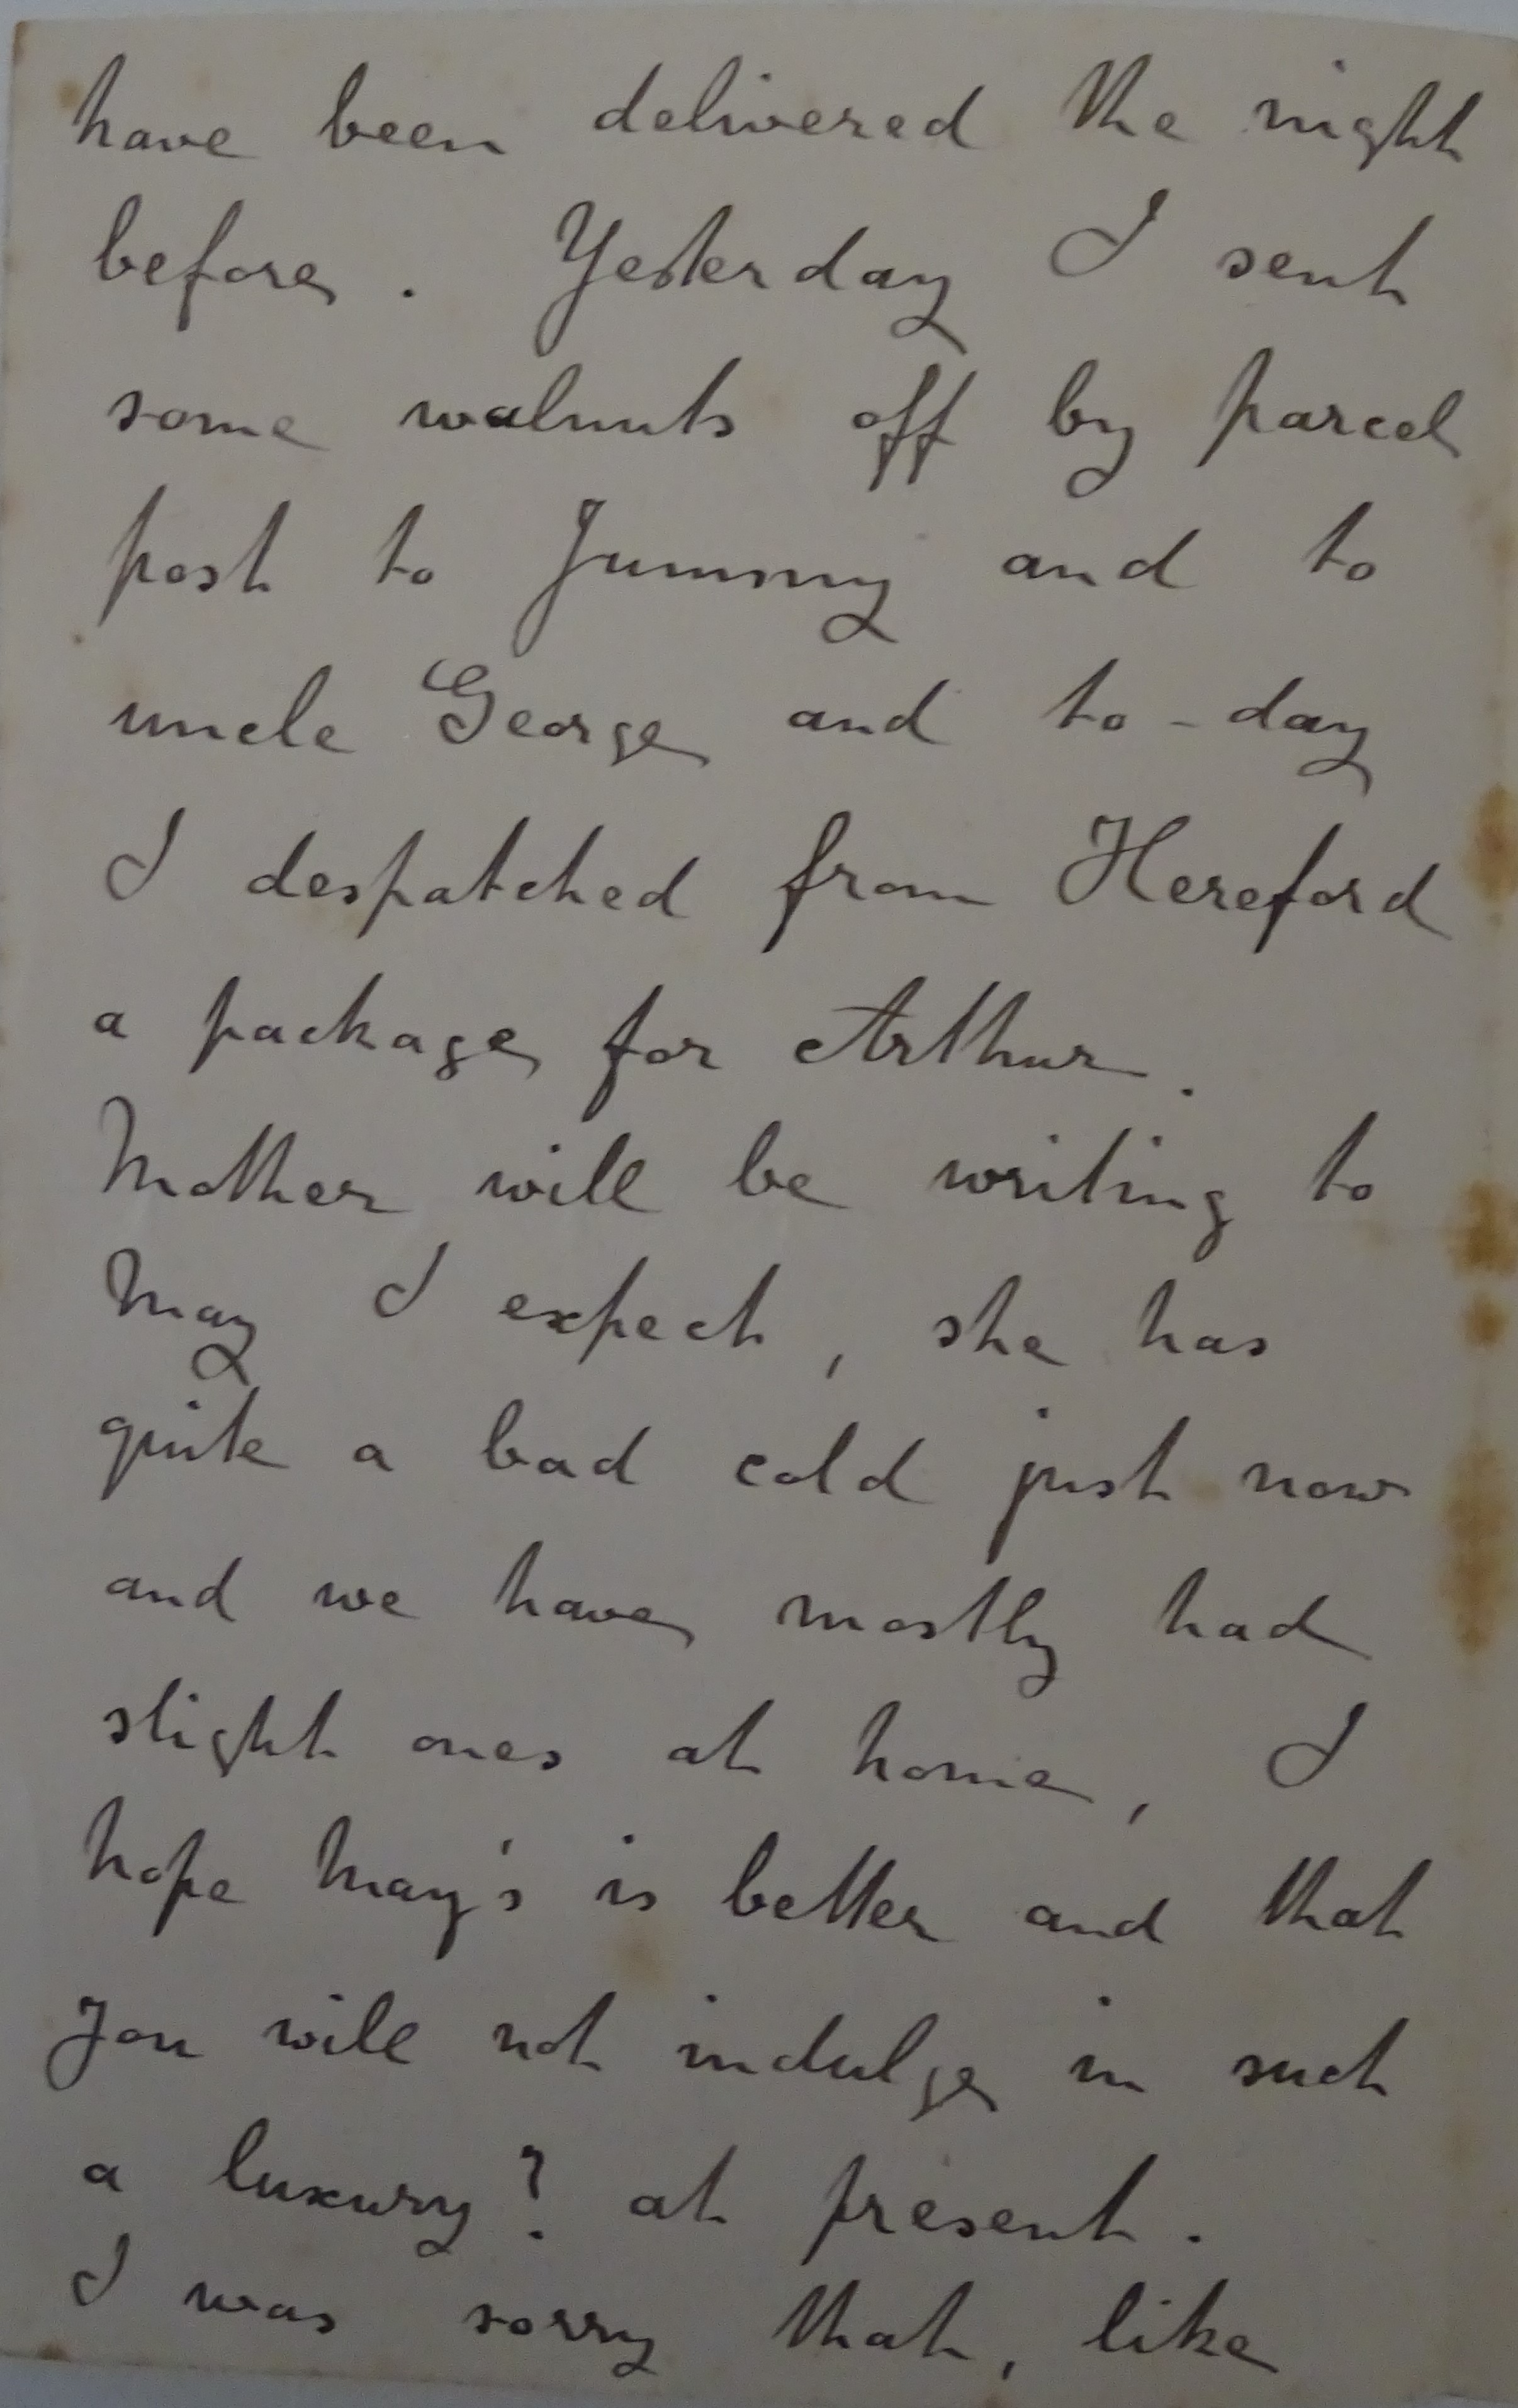 have been delivered the night
before. Yesterday I sent
some walnuts off by parcel
post to Jummy and to
uncle George and to-day
I despatched from Hereford
a package for Arthur.
Mother will be writing to
May I expect, she has
quite a bad cold just now
and we have mostly had
slight ones at home, I
hope May's is better and that
you will not indulge in such
a luxury? at present.
I was sorry that, like